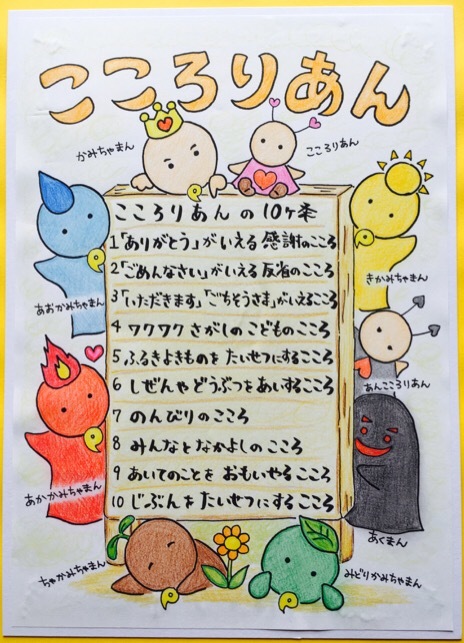 こころりあん
かみちゃまん
こころりあん
こころりあんの10ヶ条
1「ありがとう」がいえる感謝のこころ
2「ごめんなさい」がいえる反省のこころ
3「いただきます」「ごちそうさま」がいえるこころ
4 ワクワクさがしのこどものこころ
5 ふるきよきものをたいせつにするこころ
6 しぜんやどうぶつをあいするこころ
7 のんびりのこころ
8 みんなとなかよしのこころ
9 あいてのことをおもいやるこころ
10 じぶんをたいせつにするこころ
あおかみちゃまん
きかみちゃまん
あんこころりあん
あかかみちゃまん
あくまん
ちゃかみちゃまん
みどりかみちゃまん